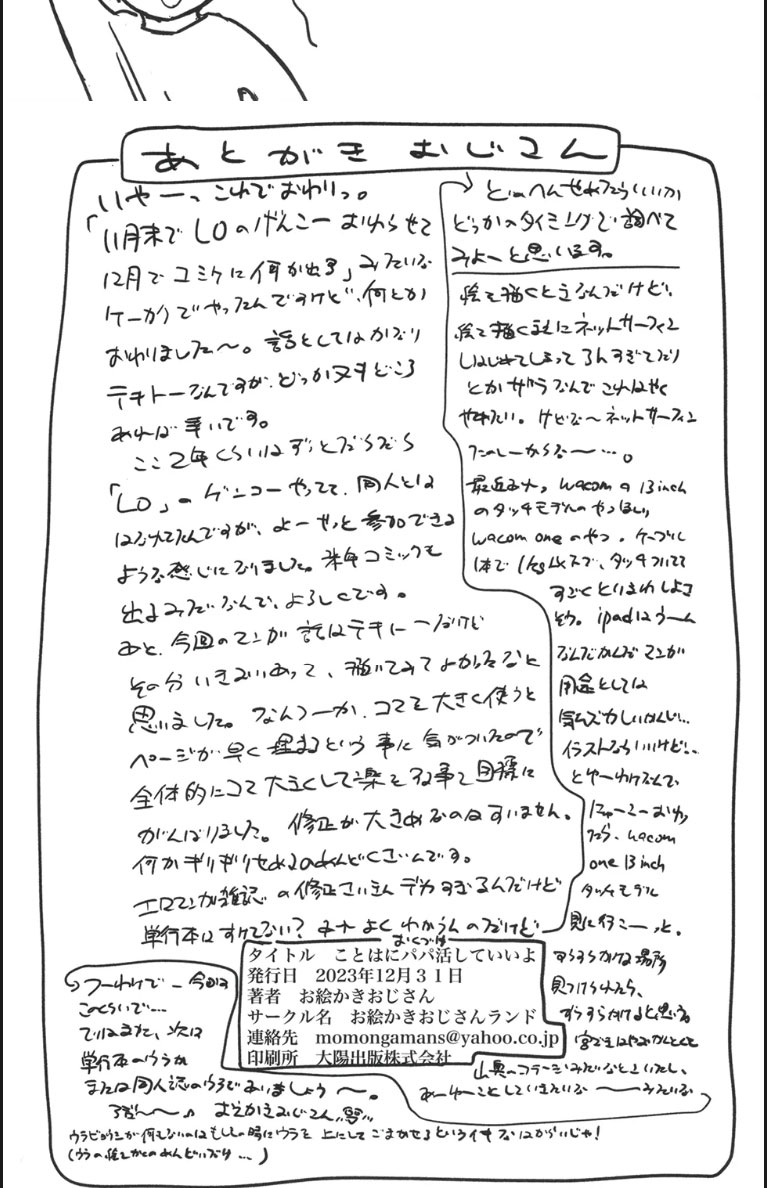 あとがき おじさん
いやーっこれでおわりっ。
「11月末でLOのげんこーおわらせて
12月でコミケに何か出る」みたいな
ケーカクでやったんですけど、何とか
おわりました〜。話としてはかなり
テキトーなんですが、どっかヌキどころ
あれば幸いです。
ここ2年くらいはずっとだらだら
「LO」のゲンコーやってて、同人とは
はなれてたんですが、よーやっと参加できる
ような感じになりました。来年コミックも
出るみたいなんで、よろしくです。
あと、今回のマンガ 話はテキトーだけど
その分いきおいあって、描いてみてよかったなと
思いました。なんつーか、コマを大きく使うと
ページが早く埋まるという事に気がついたので
全体的にコマ大きくして楽をする事を目標に
がんばりました。修正が大きめなのはすいません。
何かギリギリせめるのめんどくさいんです。
エロマンガ雑誌の修正さいきんデカすぎるんだけど
単行本はすけてない?みナよくわからんのだけど
とはへんせれたらいいか
どっかのタイミングで調べて
みよーと思います。
絵を描くときなんだけど、
絵を描くまえにネットサーフィン
しはじめてしまって3hすぎてたり
とかザラなんでこれはやく
やめたい。けどな〜ネットサーフィン
たのしーからな〜…。
最近みナ。wacomの13inch
のタッチモデルのやつほしい
wacom oneのやつ。ケーブル
1本で1kg以下で、タッチついてて
すごくといまわしよさ
そう。ipadはうーん
なんだかんだマンガ
用途としては
気ムズカしいかんじ…
イラストならいいけど…
とゆーわけなんで、
にゅーこーおわっ
たら、wacom
one 13inch
タッチモデル
見に行こーっと。
すらすらかける場所
見つけられたら、
ずっすらかけると思うる
山奥のコテージみたいなといたし、
あーゆーことしていきたいな〜みたいな
つーわけで–今回は
このくらいで…
ではまた、次は
単行本のウラか
または同人誌のウラであいましょう〜。
おえかきおじさん
ウラビョウシが何もないのはもしもの時にウラを上にしてごまかせるというイキなはからいじゃ!
(ウラの絵かくのめんどいだけ…)
おくづけ
タイトル ことはにパパ活していいよ
発行日 2023年12月31日
著者 お絵かきおじさん
サークル名 お絵かきおじさんランド
連絡先 momongamans@yahoo.co.jp
印刷所 大陽出版株式会社